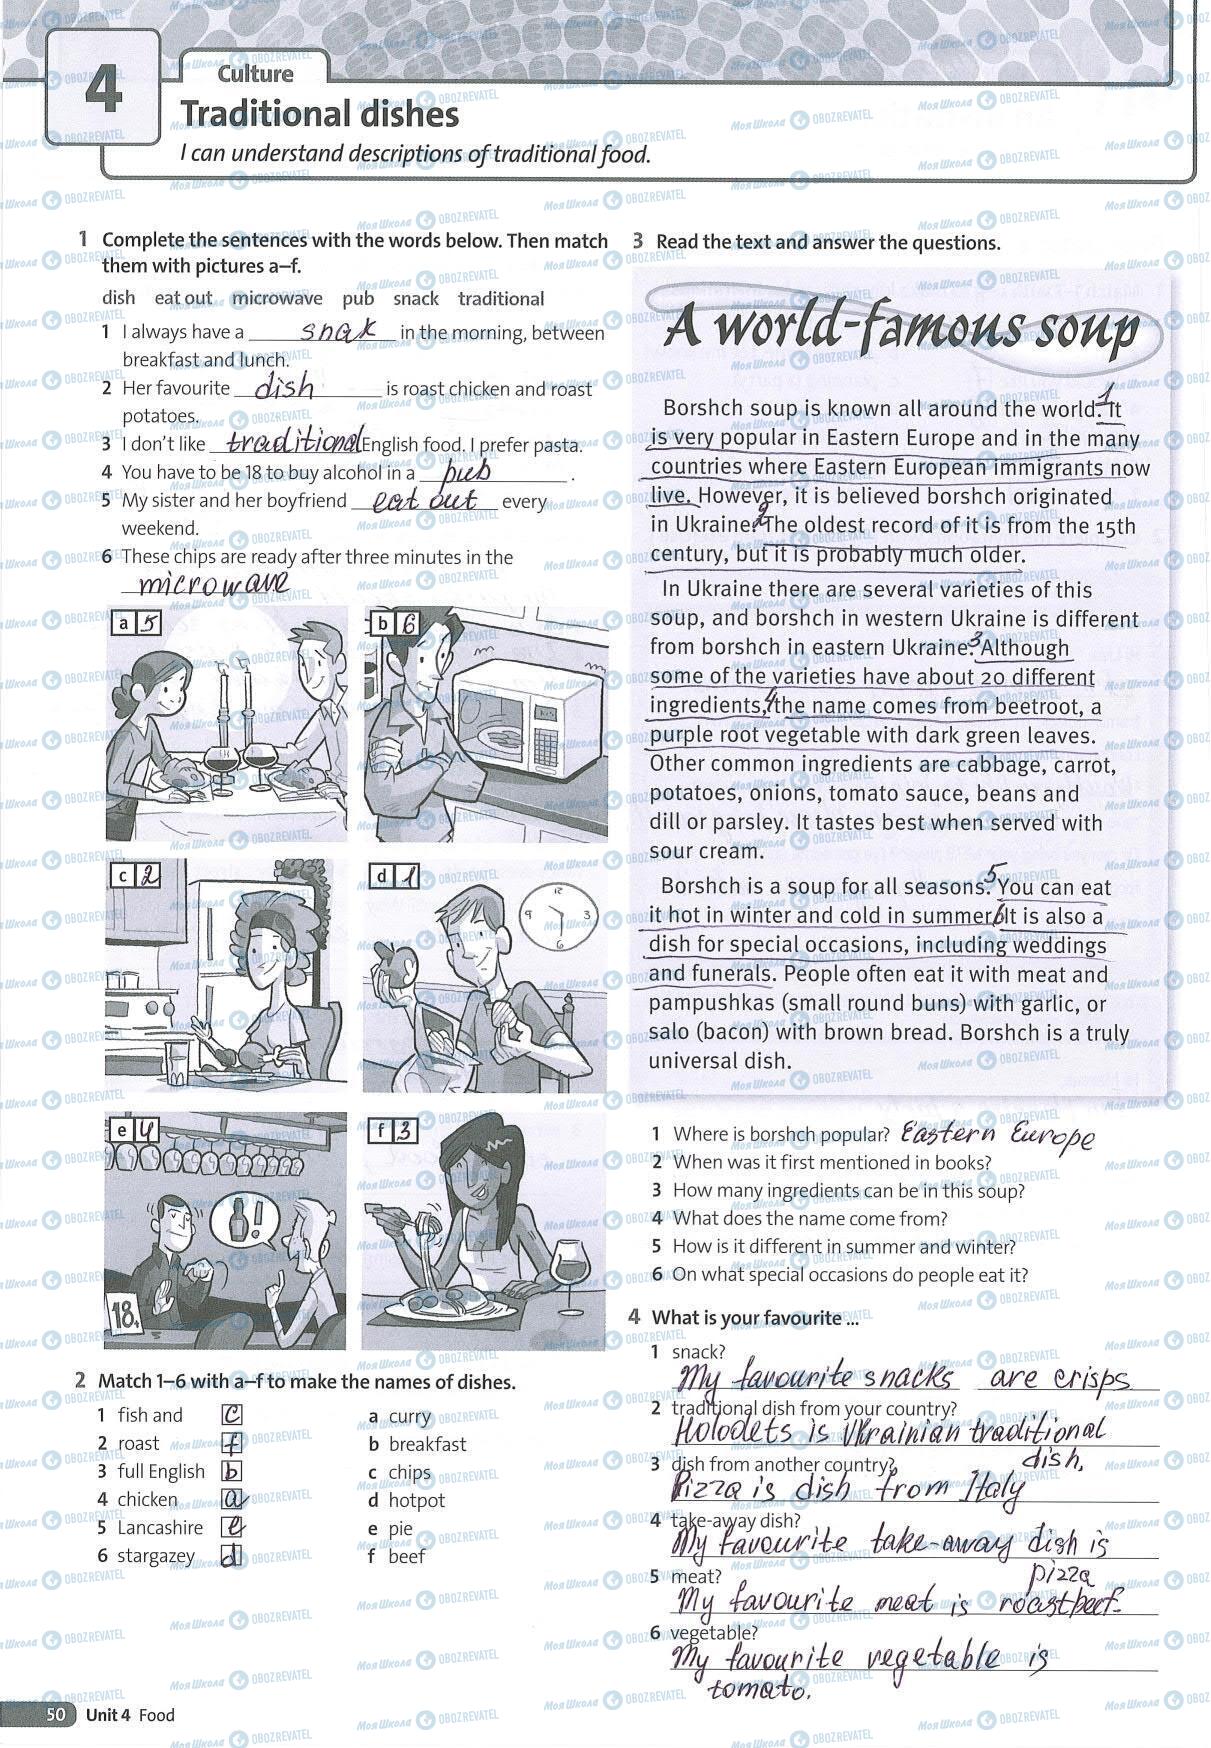 4
Culture
Traditional dishes
I can understand descriptions of traditional food.
1 Complete the sentences with the words below. Then match
them with pictures a–f.
dish eat out microwave pub snack traditional
1 I always have a snak in the morning, between
breakfast and lunch.
2 Her favourite dish is roast chicken and roast
potatoes.
3 I don't like traditional English food. I prefer pasta.
4 You have to be 18 to buy alcohol in a pub .
5 My sister and her boyfriend eat out every
weekend.
6 These chips are ready after three minutes in the
microwave
a 5
b 6
c 2
d 1
12
9 3
6
e 4
!
18+
f 3
2 Match 1–6 with a–f to make the names of dishes.
1 fish and c a curry
2 roast f b breakfast
3 full English b c chips
4 chicken a d hotpot
5 Lancashire e e pie
6 stargazey d f beef
3 Read the text and answer the questions.
A world-famous soup
Borshch soup is known all around the world. 1 It
is very popular in Eastern Europe and in the many
countries where Eastern European immigrants now
live. However, it is believed borshch originated
in Ukraine. 2 The oldest record of it is from the 15th
century, but it is probably much older.
In Ukraine there are several varieties of this
soup, and borshch in western Ukraine is different
from borshch in eastern Ukraine. 3 Although
some of the varieties have about 20 different
ingredients, 4 the name comes from beetroot, a
purple root vegetable with dark green leaves.
Other common ingredients are cabbage, carrot,
potatoes, onions, tomato sauce, beans and
dill or parsley. It tastes best when served with
sour cream.
Borshch is a soup for all seasons. 5 You can eat
it hot in winter and cold in summer. 6 It is also a
dish for special occasions, including weddings
and funerals. People often eat it with meat and
pampushkas (small round buns) with garlic, or
salo (bacon) with brown bread. Borshch is a truly
universal dish.
1 Where is borshch popular? Eastern Europe
2 When was it first mentioned in books?
3 How many ingredients can be in this soup?
4 What does the name come from?
5 How is it different in summer and winter?
6 On what special occasions do people eat it?
4 What is your favourite ...
1 snack?
My favourite snacks are crisps
2 traditional dish from your country?
Holodets is Ukrainian traditional
dish,
3 dish from another country?
Pizza is dish from Italy
4 take-away dish?
My favourite take-away dish is
pizza
5 meat?
My favourite meat is roastbeef.
6 vegetable?
My favourite vegetable is
tomato.
50 Unit 4 Food
Моя Школа OBOZREVATEL